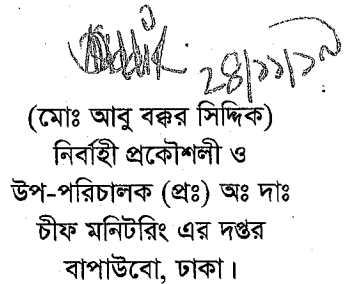 ২৪/১১/১৯
(মোঃ আবু বক্কর সিদ্দিক)
নির্বাহী প্রকৌশলী ও
উপ-পরিচালক (প্রঃ) অঃ দাঃ
চীফ মনিটরিং এর দপ্তর
বাপাউবো, ঢাকা।